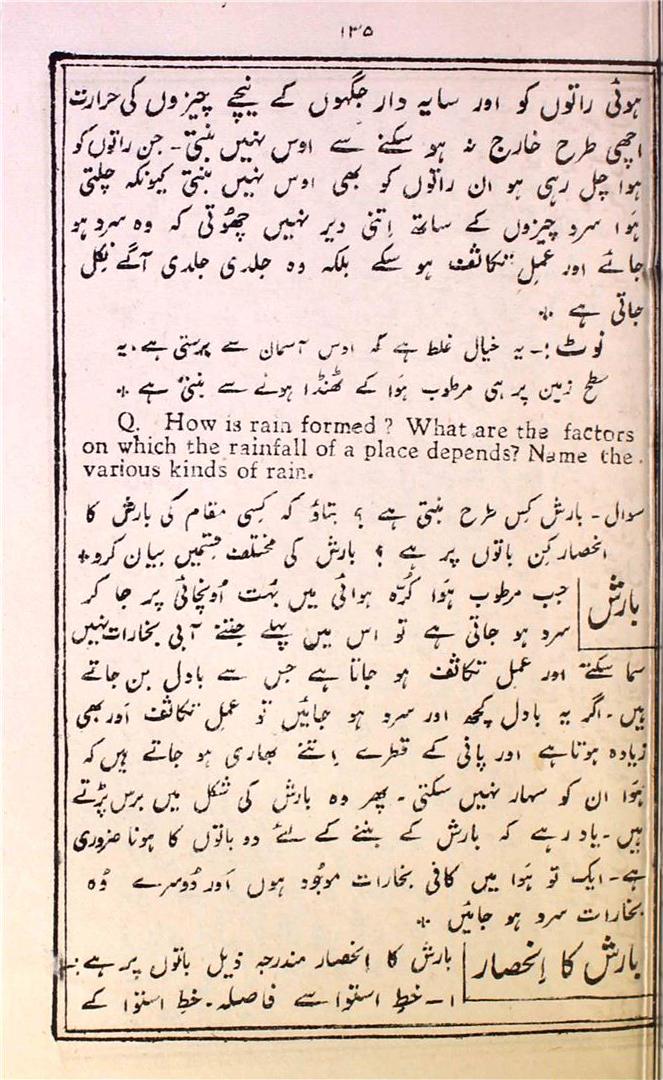 ۱۳۵
ہوئی راتوں کو اور سایہ دار جگہوں کے نیچے چیزوں کی حرارت
اچھی طرح خارج نہ ہو سکنے سے اوس نہیں بنتی۔ جن راتوں کو
ہوا چل رہی ہو ان راتوں کو بھی اوس نہیں بنتی کیونکہ چلتی
ہَوا سرد چیزوں کے ساتھ اِتنی دیر نہیں چھُوتی کہ وہ سرد ہو
جائے اور عملِ تکاثف ہو سکے بلکہ وہ جلدی جلدی آگے نِکل
جاتی ہے ٭
نوٹ:۔ یہ خیال غلط ہے کہ اوس آسمان سے پرستی ہے۔ یہ
سطح زمین پر ہی مرطوب ہَوا کے ٹھنڈا ہونے سے بنتی ہے ٭
Q. How is rain formed ? What are the factors
on which the rainfall of a place depends? Name the
various kinds of rain.
سوال۔ بارش کِس طرح بنتی ہے ؟ بتاؤ کہ کِسی مقام کی بارش کا
انحصار کِن باتوں پر ہے ؟ بارش کی مختلف قِسمیں بیان کرو٭
بارش
جب مرطوب ہَوا کُرّہ ہوائی میں بہُت اُونچائی پر جا کر
سرد ہو جاتی ہے تو اس میں پہلے جتنے آبی بخارات نہیں
سما سکتے اور عمل تکاثف ہو جاتا ہے جس سے بادل بن جاتے
ہیں۔ اگر یہ بادل کچھ اور سرد ہو جائیں تو عمل تکاثف اَور بھی
زیادہ ہوتا ہے اور پانی کے قطرے اِتنے بھاری ہو جاتے ہیں کہ
ہَوا ان کو سہار نہیں سکتی۔ پھر وہ بارش کی شکل میں برس پڑتے
ہیں۔ یاد رہے کہ بارش کے بننے کے لئے دو باتوں کا ہونا ضروری
ہے۔ ایک تو ہَوا میں کافی بخارات موجُود ہوں اَور دُوسرے وُہ
بخارات سرد ہو جائیں ٭
بارش کا اِنحصار
بارش کا اِنحصار مندرجہ ذیل باتوں پر ہے :۔
۱۔ خطِ استوا سے فاصلہ۔ خطِ استوا کے